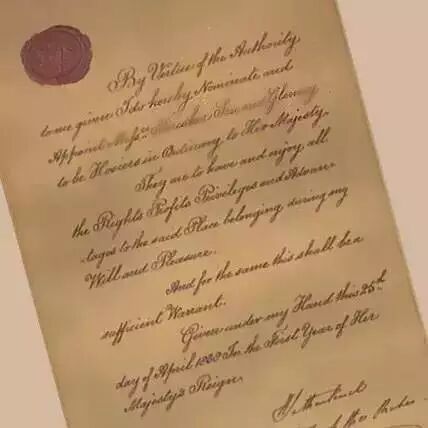 By Virtue of the Authority
to me given I do hereby Nominate and
Appoint Messrs and
to be Hosiers in Ordinary to Her Majesty.
They are to have and enjoy all
the Rights Profits Privileges and Advan-
tages to the said Place belonging during my
Will and Pleasure.
And for the same this shall be a
sufficient Warrant.
Given under my Hand this 25th
day of April 1838 In the First Year of Her
Majesty's Reign.